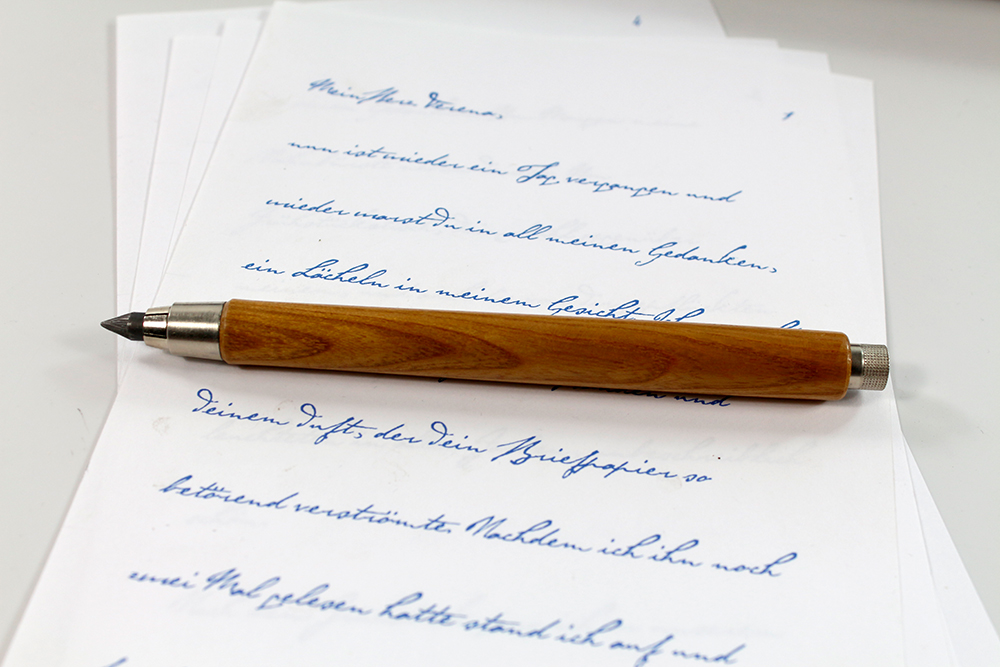 Mein Herz Verena, 1
nun ist wieder ein Tag vergangen und
wieder warst du in all meinen Gedanken,
ein Lächeln in meinem Gesicht.
und
deinem Duft, der dein Briefpapier so
betörend verströmte. Nachdem ich ihn noch
zwei Mal gelesen hatte stand ich auf und